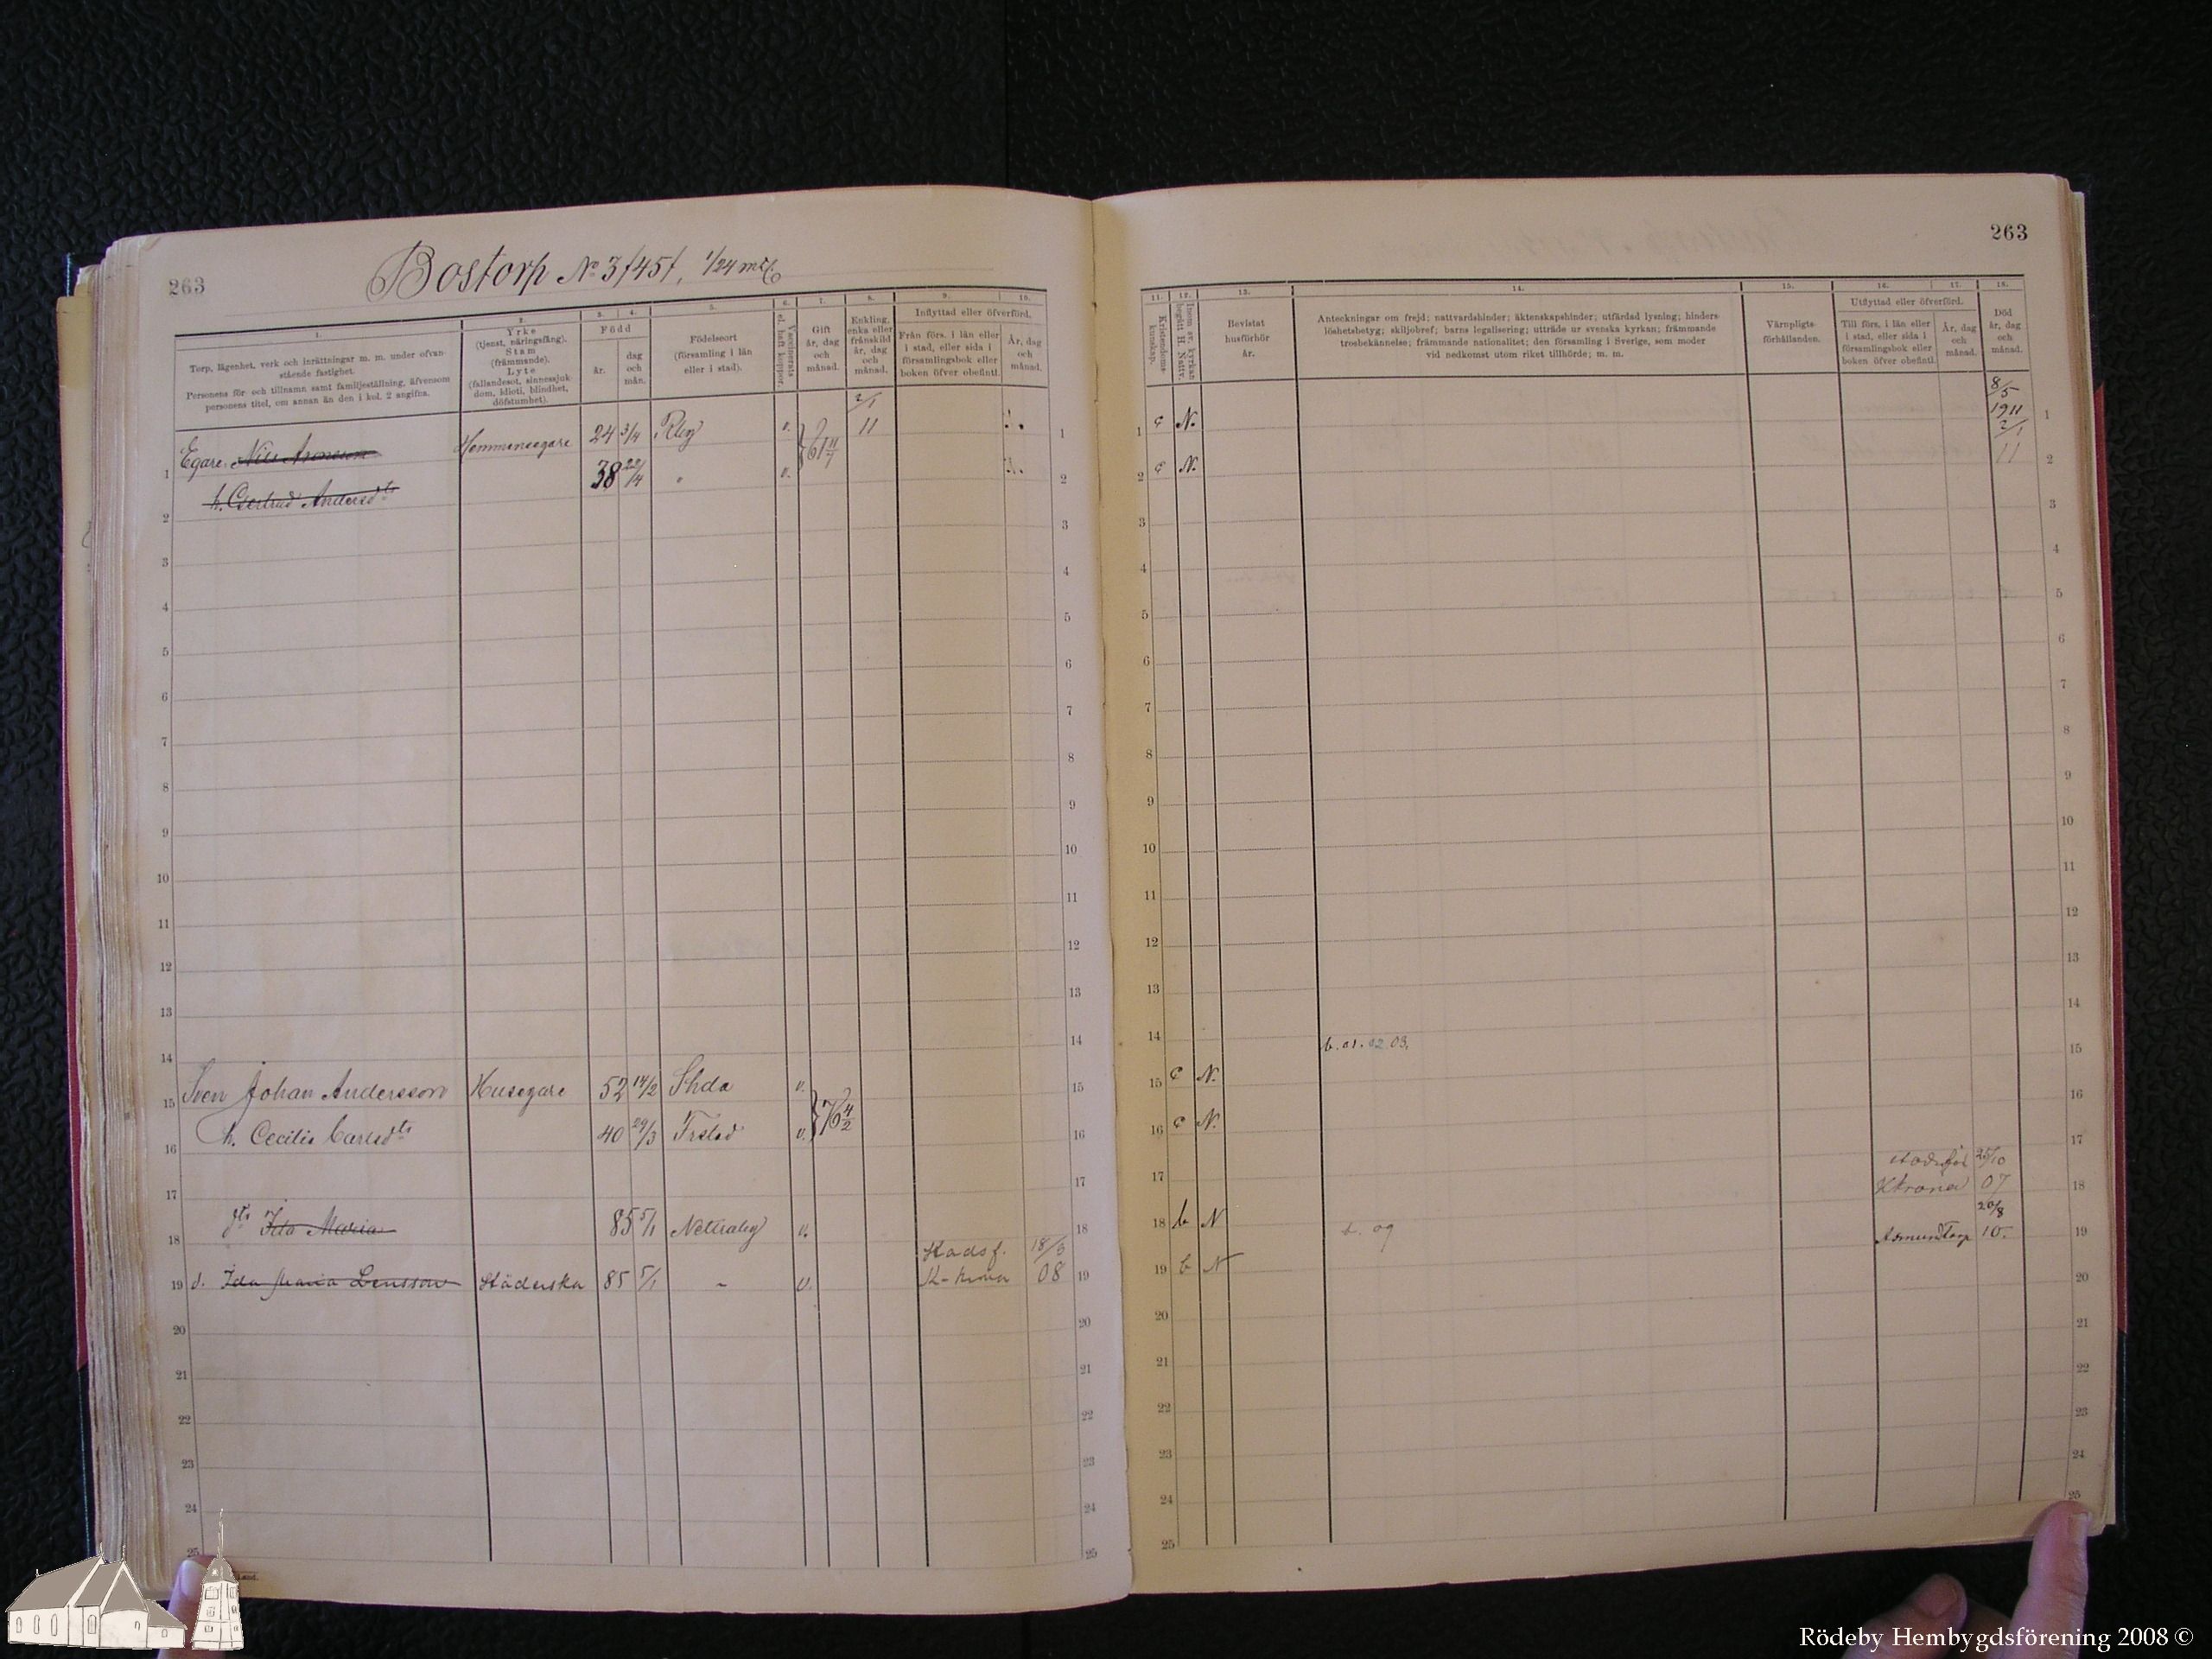 263
Bostorp No 3/45/, 1/24 mtl
1. 2. 3. 4. 5. 6. 7. 8. 9. 10.
Torp, lägenhet, verk och inrättningar m. m. under ofvan-
stående fastighet.
Personens för- och tillnamn samt familjeställning, äfvensom
personens titel, om annan än den i kol. 2 angifna.
Yrke
(tjenst, näringsfång).
Stam
(främmande).
Lyte
(fallandesot, sinnessjuk-
dom, idioti, blindhet,
döfstumhet).
Född
år.
dag
och
mån.
Födelseort
(församling i län
eller i stad).
Vaccinerats
el. haft koppor.
Gift
år, dag
och
månad.
Enkling,
enka eller
frånskild
år, dag
och
månad.
Inflyttad eller öfverförd.
Från förs. i län eller
i stad, eller sida i
församlingsbok eller
boken öfver obefintl.
År, dag
och
månad.
Egare Nils Aronsson Hemmansegare 24 3/4 Rby v. 61 11/7 2/1 11
h. Gertrud Andersdts 38 22/4 " v.
Sven Johan Andersson Husegare 52 14/2 v. 76 4/2
h. Cecilia Carlsdts 40 29/3 Frstad v.
Ida Maria 85 5/1 Nettraby v.
d. Ida Maria Bensson Städerska 85 5/1 - v. Stadsf. K-krona 18/3 08
263
11. 12. 13. 14. 15. 16. 17. 18.
Kristendoms-
kunskap.
Inom sv. kyrkan
begått H. Nattv.
Bevistat
husförhör
år.
Anteckningar om frejd; nattvardshinder; äktenskapshinder; utfärdad lysning; hinders-
löshetsbetyg; skiljobref; barns legalisering; utträde ur svenska kyrkan; främmande
trosbekännelse; främmande nationalitet; den församling i Sverige, som moder
vid nedkomst utom riket tillhörde; m. m.
Värnpligts-
förhållanden.
Utflyttad eller öfverförd.
Till förs. i län eller
i stad, eller sida i
församlingsbok eller
boken öfver obefintl.
År, dag
och
månad.
Död
år, dag
och
månad.
c N. 8/5 1911
c N. 2/1 11
b. 01. 02. 03.
c N.
c N.
b N Stadsförs Kkrona 25/10 07
b N b. 09 Asmundtorp 20/8 10.
Rödeby Hembygdsförening 2008 ©